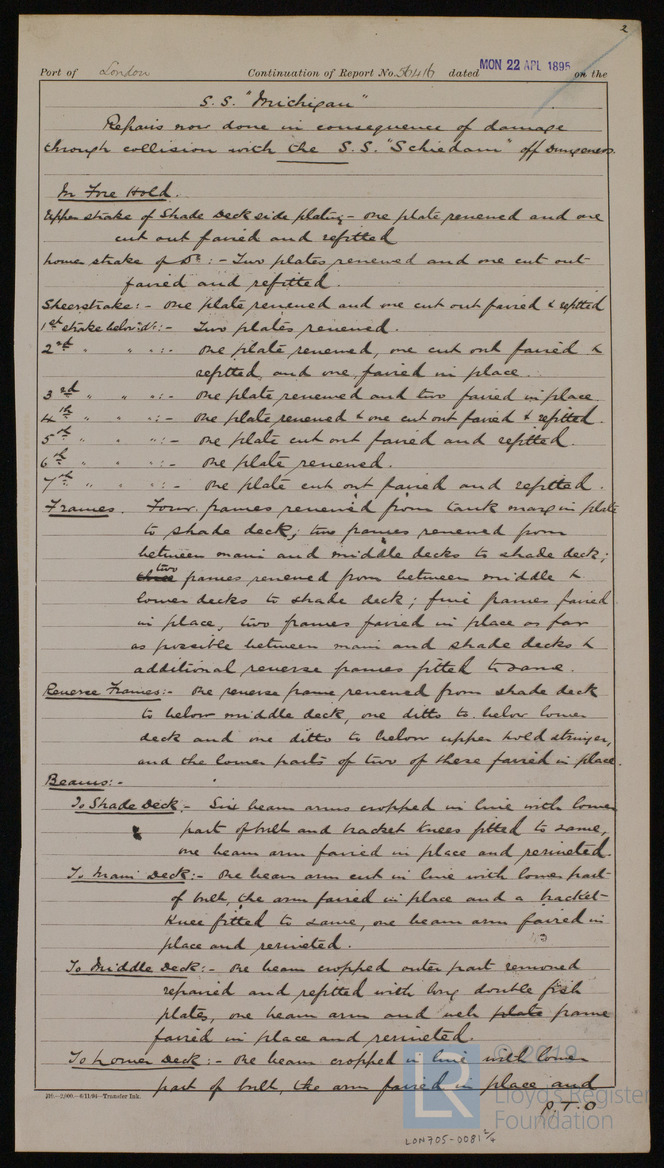 2
Port of London Continuation of Report No. 56416 dated MON 22 APL 1895 on the
S.S. "Michigan"
Repairs now done in consequence of damage
through collision with the S.S. "Schiedam" off Dungeness.
In Fore Hold.
Upper strake of Shade Deck side plating - One plate renewed and one
cut out faired and refitted
Lower strake of Do. :- Two plates renewed and one cut out
faired and refitted.
Sheerstrake :- One plate renewed and one cut out faired & refitted
1st strake below do :- Two plates renewed.
2nd " " " :- One plate renewed, one cut out faired &
refitted and one faired in place.
3rd " " " :- One plate renewed and two faired in place
4th " " " :- One plate renewed & one cut out faired & refitted.
5th " " " :- One plate cut out faired and refitted.
6th " " " :- One plate renewed.
7th " " " :- One plate cut out faired and refitted.
Frames. Four frames renewed from tank margin plate
to shade deck; two frames renewed from
between main and middle decks to shade deck;
two frames renewed from between middle &
lower decks to shade deck; five frames faired
in place, two frames faired in place as far
as possible between main and shade decks &
additional reverse frames fitted to same.
Reverse Frames:- One reverse frame renewed from shade deck
to below middle deck, one ditto to below lower
deck and one ditto to below upper hold stringer,
and the lower parts of two of these faired in place.
Beams:-
To Shade Deck:- Six beam arms cropped in line with lower
part of bulb and bracket knees fitted to same,
one beam arm faired in place and reriveted.
To Main Deck:- One beam arm cut in line with lower part
of bulb, the arm faired in place and a bracket
knee fitted to same, one beam arm faired in
place and reriveted.
To Middle Deck:- One beam cropped outer part removed
repaired and refitted with long double fish
plates, one beam arm and web plate frame
faired in place and reriveted.
To Lower Deck:- One beam cropped in line with lower
part of bulb, the arm faired in place and
P.T.O
2H.-2,000.-6/11/94-Transfer Ink.
© 2019
LR
Lloyd's Register
Foundation
LON705-0081 2/4